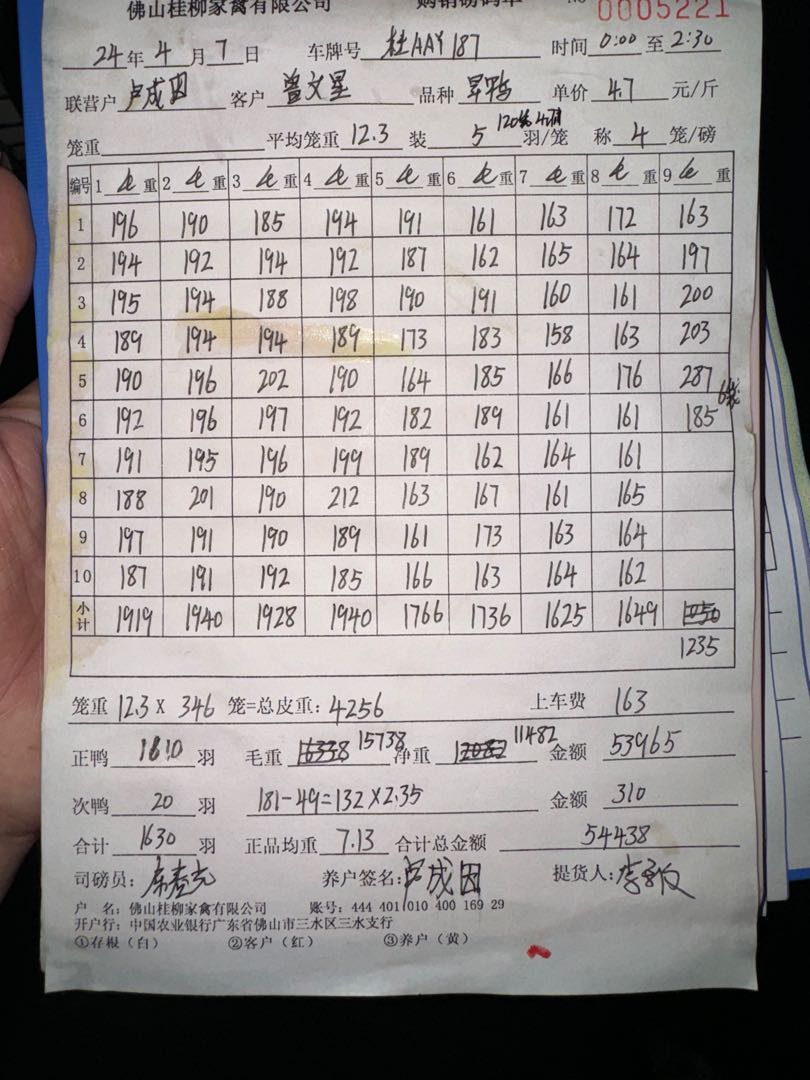 佛山桂柳家禽有限公司 购销磅码单 No 0005221
24年4月7日 车牌号 桂AAY187 时间 0:00 至 2:30
联营户 卢成因 客户 曾文星 品种 旱鸭 单价 4.7 元/斤
笼重 平均笼重 12.3 装 5 羽/笼 称 4 笼/磅
编号 1 毛重 2 毛重 3 毛重 4 毛重 5 毛重 6 毛重 7 毛重 8 毛重 9 毛重
1 196 190 185 194 191 161 163 172 163
2 194 192 194 192 187 162 165 164 197
3 195 194 188 198 190 191 160 161 200
4 189 194 194 189 173 183 158 163 203
5 190 196 202 190 164 185 166 176 287
6 192 196 197 192 182 189 161 161 185 6笼
7 191 195 196 199 189 162 164 161
8 188 201 190 212 163 167 161 165
9 197 191 190 189 161 173 163 164
10 187 191 192 185 166 163 164 162
小计 1919 1940 1928 1940 1766 1736 1625 1649
1235
笼重 12.3 X 346 笼=总皮重: 4256 上车费 163
正鸭 1610 羽 毛重 15738 净重 11482 金额 53965
次鸭 20 羽 181-49=132X2.35 金额 310
合计 1630 羽 正品均重 7.13 合计总金额 54438
司磅员: 养户签名: 卢成因 提货人:
户 名: 佛山桂柳家禽有限公司 账号: 444 401 010 400 169 29
开户行: 中国农业银行广东省佛山市三水区三水支行
①存根(白) ②客户(红) ③养户(黄)